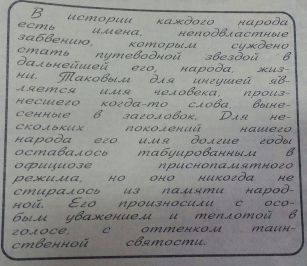 В истории каждого народа
есть имена, неподвластные
забвению, которым суждено
стать путеводной звездой в
дальнейшей его, народа, жиз-
ни. Таковым для ингушей яв-
ляется имя человека, произ-
несшего когда-то слова, выне-
сенные в заголовок. Для не-
скольких поколений нашего
народа его имя долгие годы
оставалось табуированным в
официозе приснопамятного
режима, но оно никогда не
стиралось из памяти народ-
ной. Его произносили с осо-
бым уважением и теплотой в
голосе, с оттенком таин-
ственной святости.